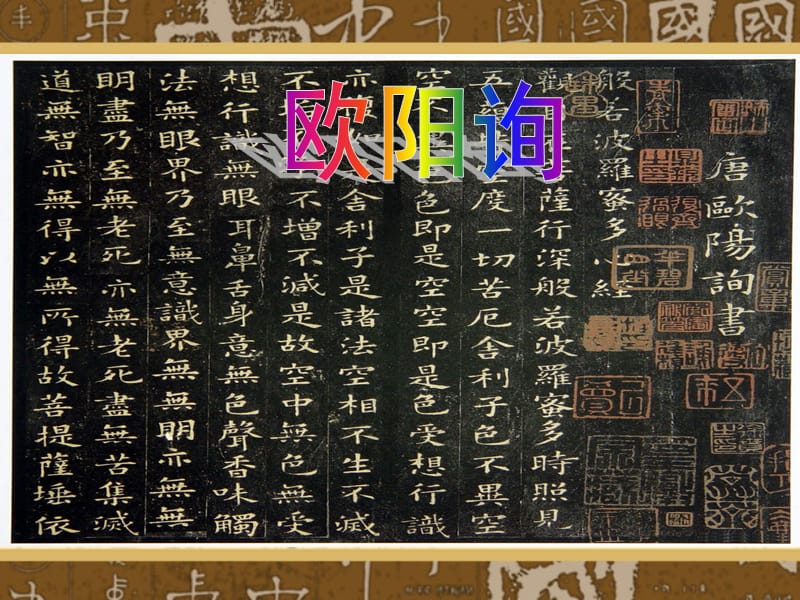 欧阳询
唐歐陽詢書
般若波羅蜜多心經
觀薩行深般若波羅蜜多時照見
五度一切苦厄舍利子色不異空
空色即是空空即是色受想行識
亦舍利子是諸法空相不生不滅
不不增不減是故空中無色無受
想行識無眼耳鼻舌身意無色聲香味觸
法無眼界乃至無意識界無無明亦無無
明盡乃至無老死亦無老死盡無苦集滅
道無智亦無得以無所得故菩提薩埵依